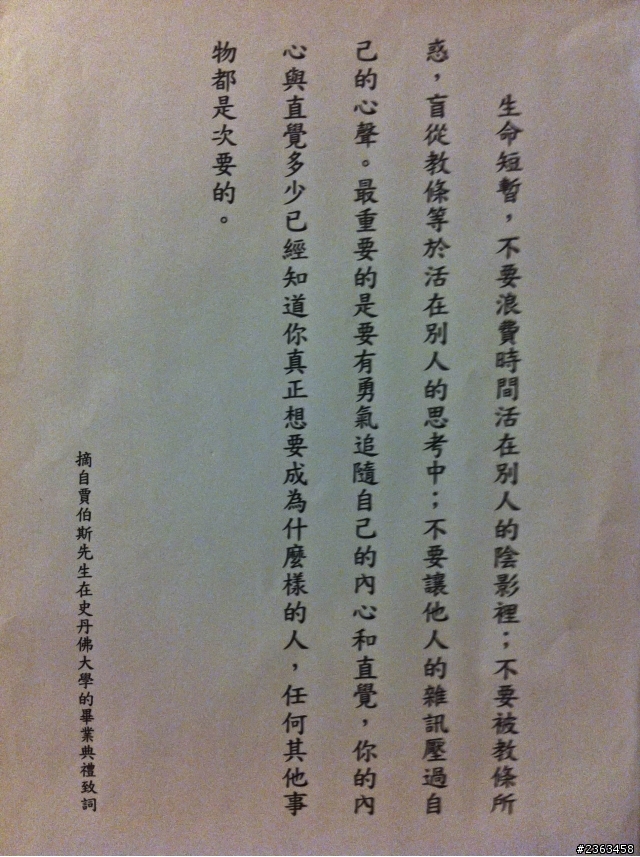 生命短暫，不要浪費時間活在別人的陰影裡；不要被教條所
惑，盲從教條等於活在別人的思考中；不要讓他人的雜訊壓過自
己的心聲。最重要的是要有勇氣追隨自己的內心和直覺，你的內
心與直覺多少已經知道你真正想要成為什麼樣的人，任何其他事
物都是次要的。
摘自賈伯斯先生在史丹佛大學的畢業典禮致詞
#2363458